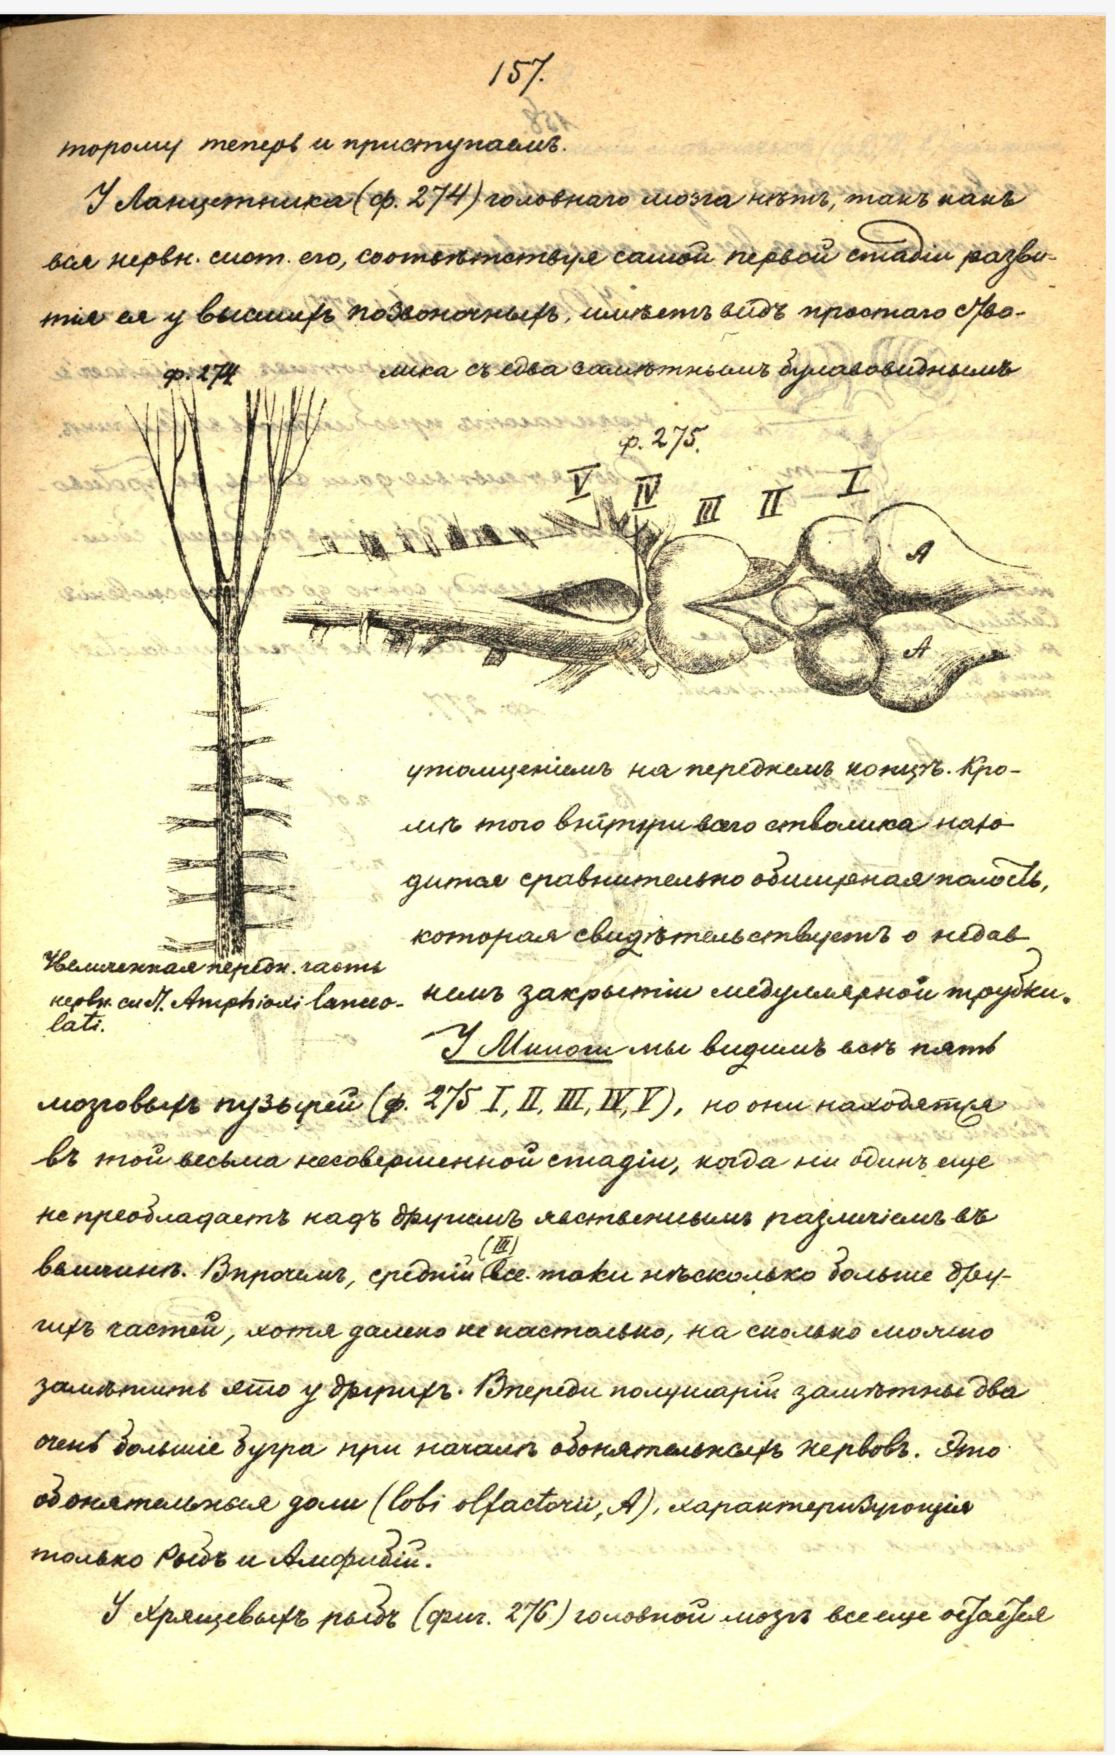 157.
торому теперь и приступаемъ.
У Ланцетника (ф. 274) головнаго мозга нѣтъ, такъ какъ
вся нервн. сист. его, соотвѣтствуя самой первой стадіи разви-
тія ея у высшихъ позвоночныхъ, имѣетъ видъ простаго ство-
ф. 274
лика съ едва замѣтнымъ булавовиднымъ
ф. 275.
V IV III II I
A
A
утолщеніемъ на переднемъ концѣ. Кро-
мѣ того внутри всего стволика нахо-
дится сравнительно обширная полость,
которая свидѣтельствуетъ о недав-
немъ закрытіи медуллярной трубки.
Увеличенная передн. часть
нервн. сист. Amphioxi lanceo-
lati.
У Миноги мы видимъ всѣ пять
мозговыхъ пузырей (ф. 275 I, II, III, IV, V), но они находятся
въ той весьма несовершенной стадіи, когда ни одинъ еще
не преобладаетъ надъ другимъ явственнымъ различіемъ въ
величинѣ. Впрочемъ, средній (III) все-таки нѣсколько больше дру-
гихъ частей, хотя далеко не настолько, на сколько можно
замѣтить это у другихъ. Впереди полушарій замѣтны два
очень большіе бугра при началѣ обонятельныхъ нервовъ. Это
обонятельныя доли (lobi olfactorii, A), характеризующія
только Рыбъ и Амфибій.
У Хрящевыхъ рыбъ (фиг. 276) головной мозгъ все еще остается